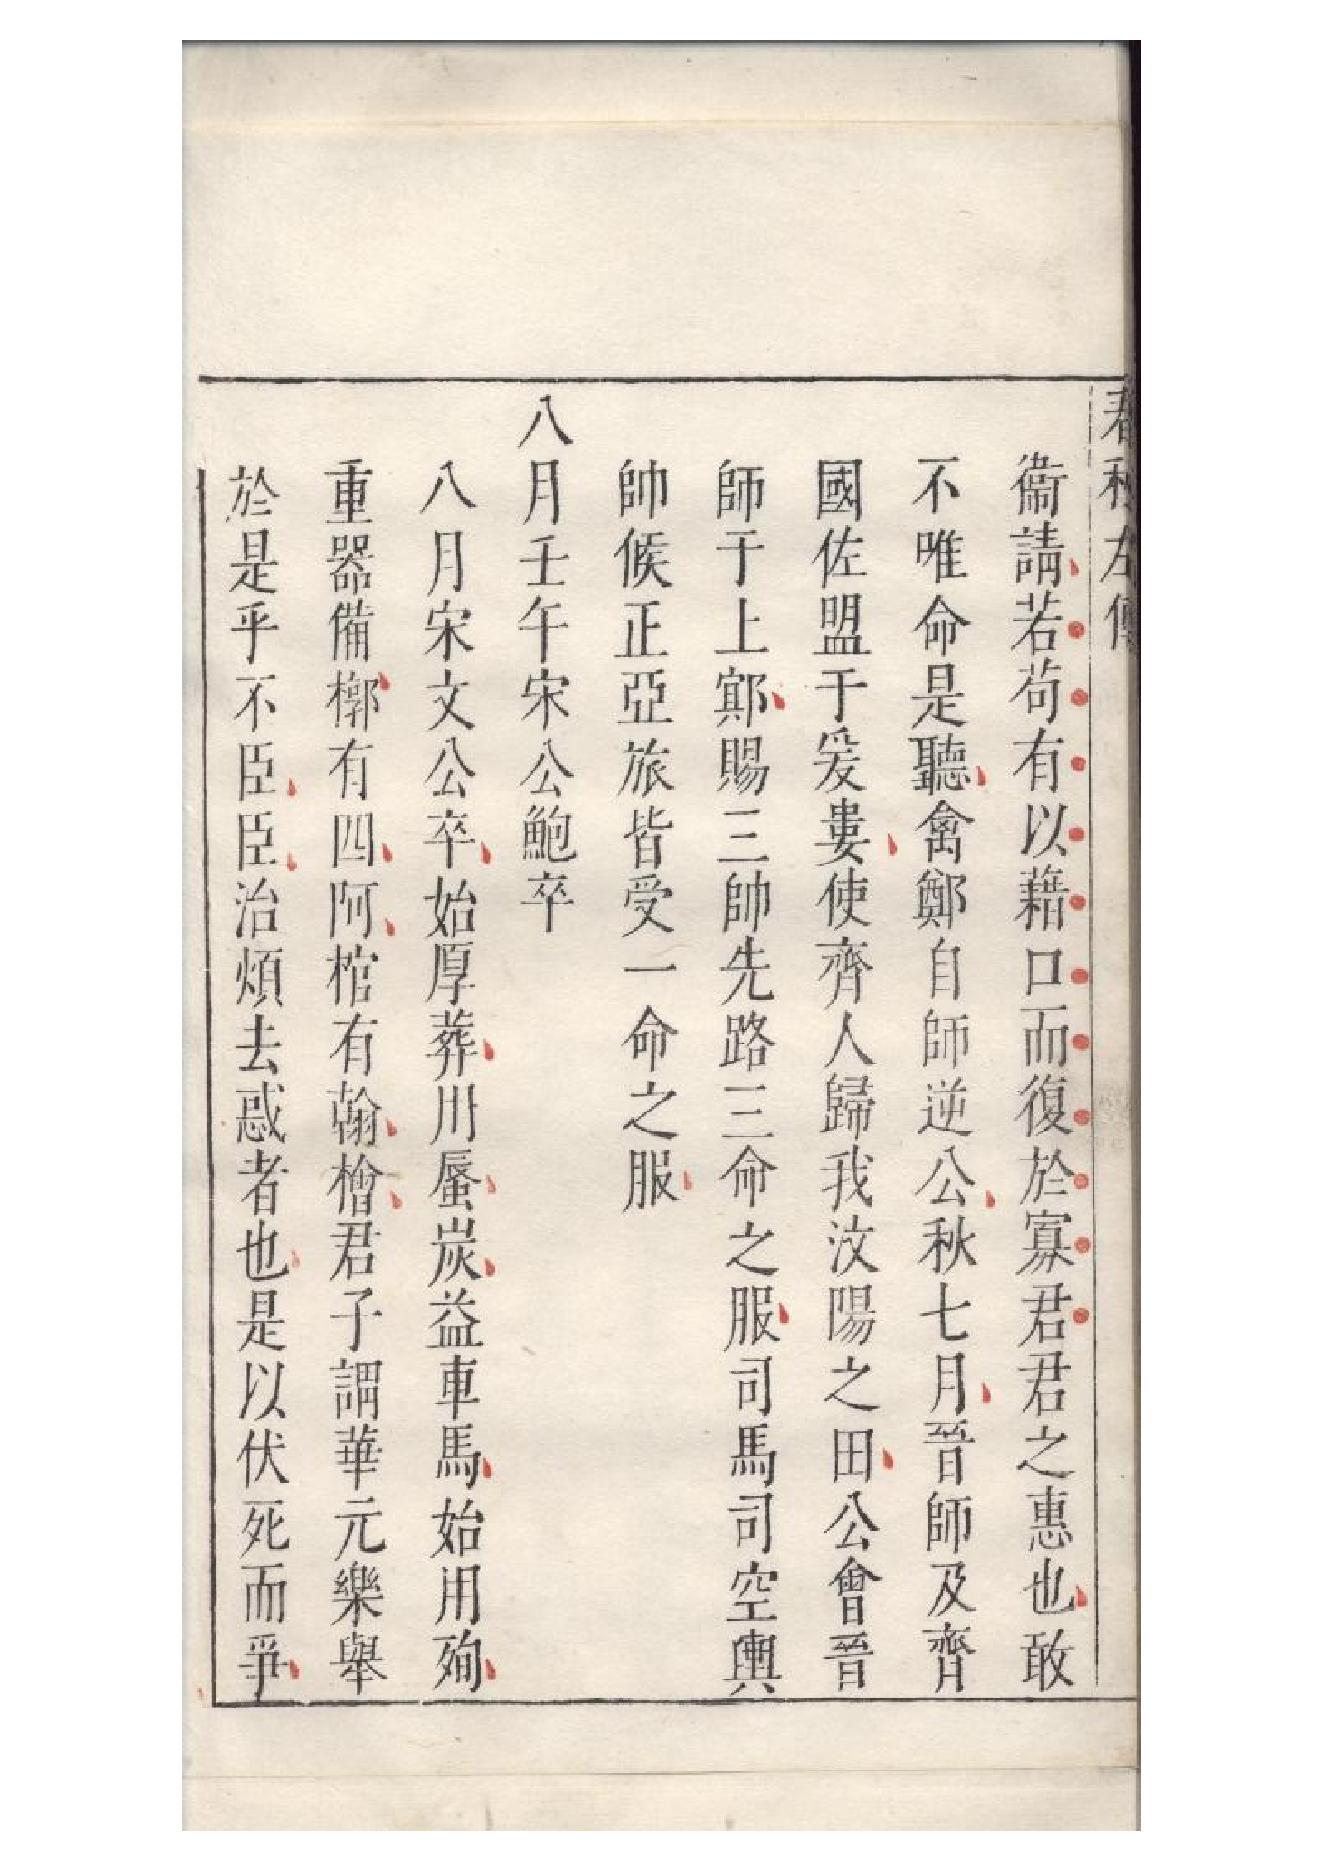 春秋左傳
衞請若苟有以藉口而復於寡君君之惠也敢
不唯命是聽禽鄭自師逆公秋七月晉師及齊
國佐盟于爰婁使齊人歸我汶陽之田公會晉
師于上鄍賜三帥先路三命之服司馬司空輿
帥候正亞旅皆受一命之服
八月壬午宋公鮑卒
八月宋文公卒始厚葬用蜃炭益車馬始用殉
重器備槨有四阿棺有翰檜君子謂華元樂舉
於是乎不臣臣治煩去惑者也是以伏死而爭